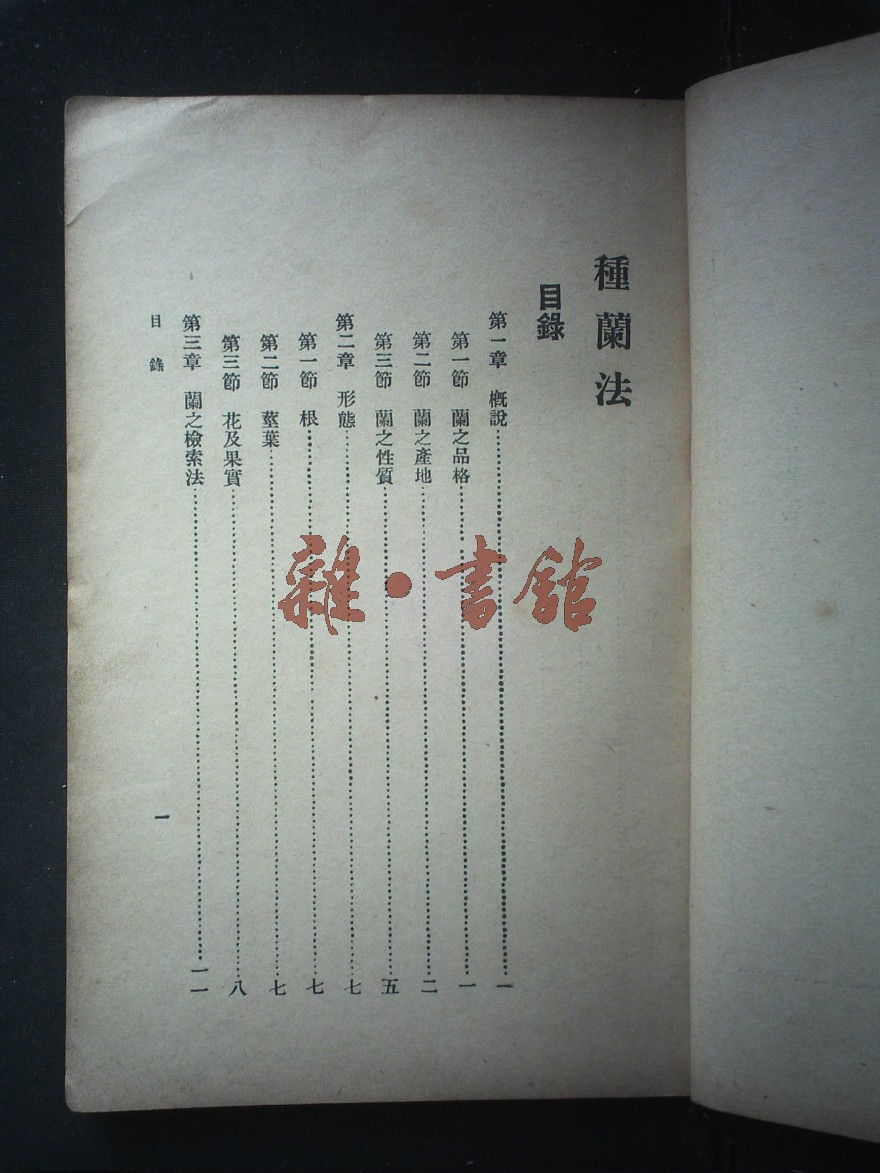 種蘭法
目錄
第一章 概說……一
第一節 蘭之品格……一
第二節 蘭之產地……二
第三節 蘭之性質……五
第二章 形態……七
第一節 根……七
第二節 莖葉……七
第三節 花及果實……八
第三章 蘭之檢索法……一一
目錄
一
雜·書館